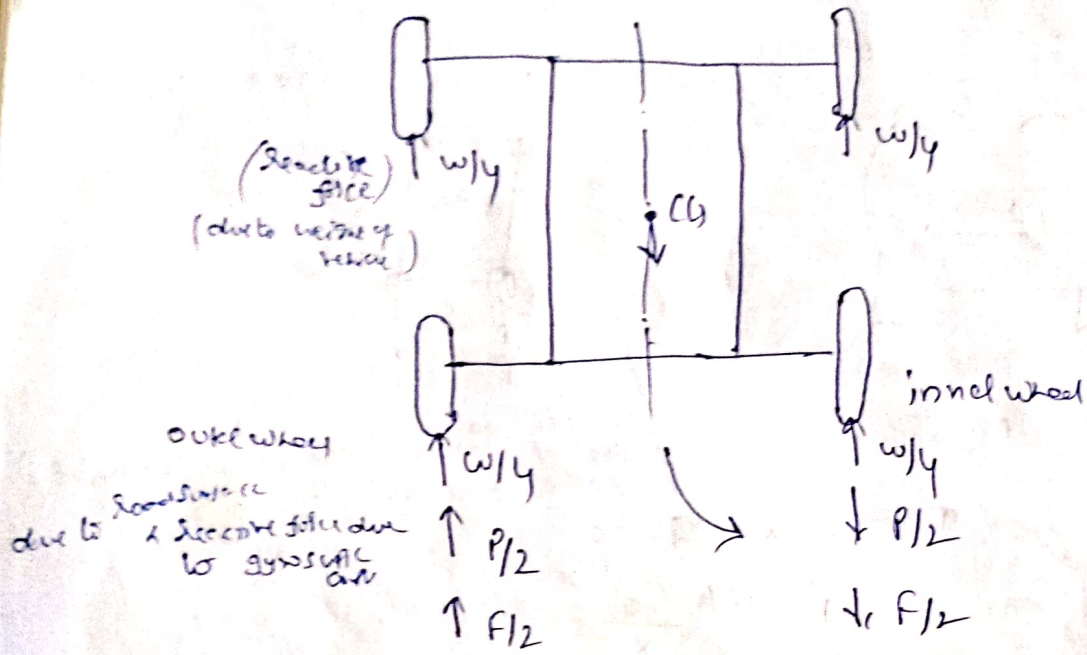 W/4
W/4
(Reactive
force)
(due to weight of
vehicle)
CG
inner wheel
outer wheel
W/4
W/4
due to road surface
& reactive force due
to gyroscopic
P/2
P/2
F/2
F/2